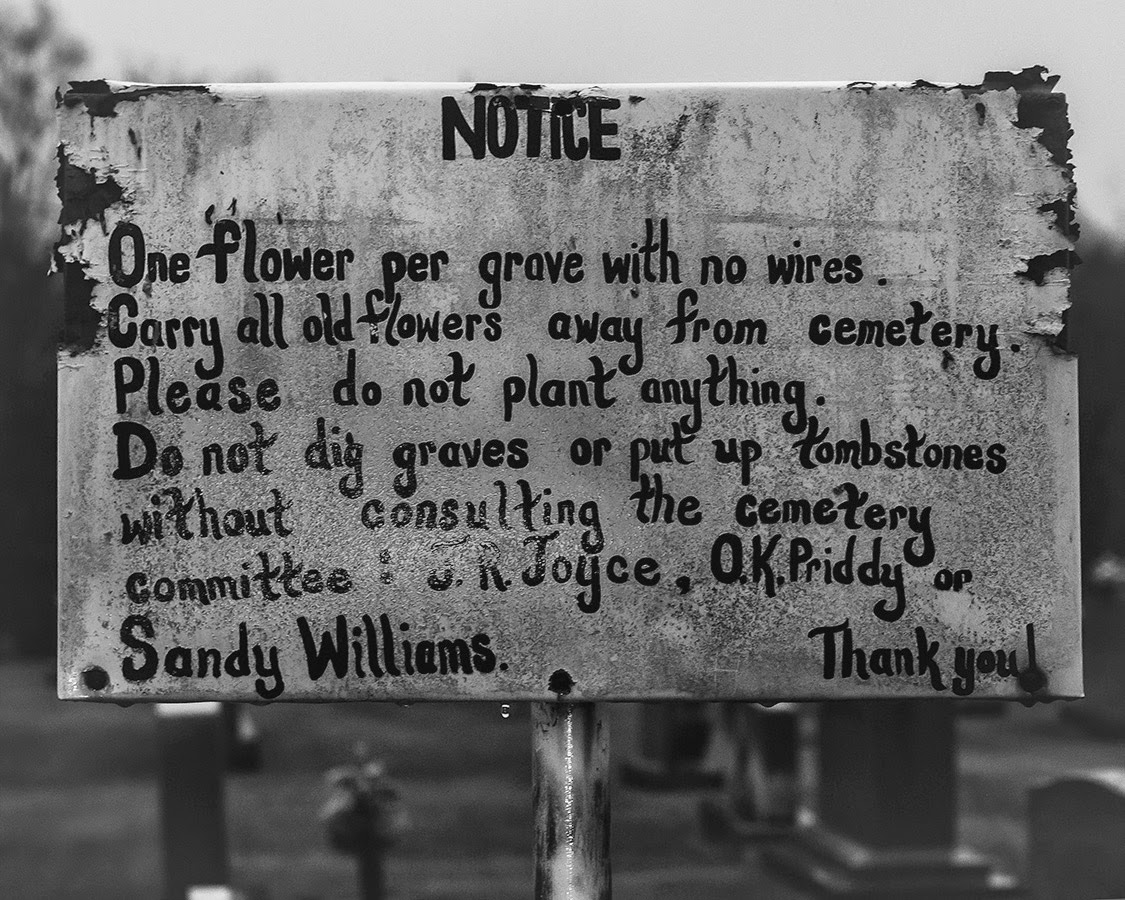 NOTICE
One flower per grave with no wires.
Carry all old flowers away from cemetery.
Please do not plant anything.
Do not dig graves or put up tombstones
without consulting the cemetery
committee : J.R. Joyce, O.K. Priddy or
Sandy Williams. Thank you!